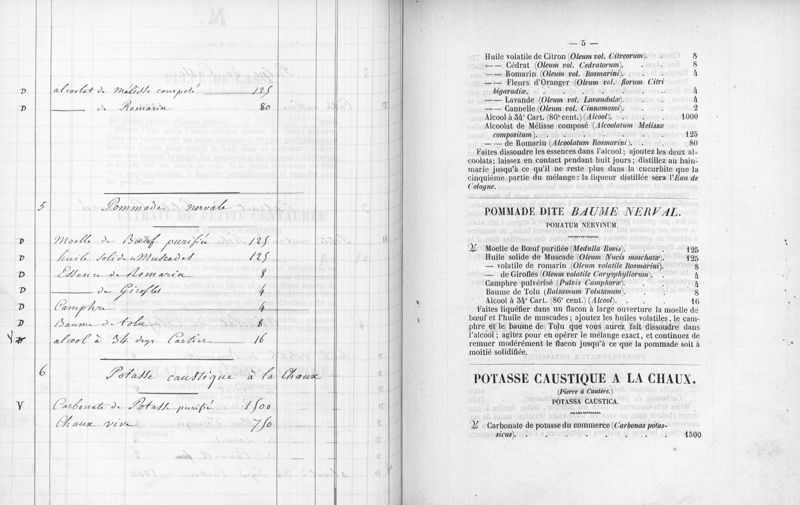 D alcoolat de Melisse composé 125
D —— de Romarin 80
5 Pommade nervale
D Moelle de Bœuf purifiée 125
D huile solide Muscades 125
D Essence de Romarin 8
D —— de Girofles 4
D Camphre 4
D Baume de tolu 8
V alcool à 34 degr Cartier 16
6 Potasse caustique à la Chaux
V Carbonate de Potasse purifié 1500
Chaux vive 750
— 5 —
Huile volatile de Citron (Oleum vol. Citreorum). 8
—— Cédrat (Oleum vol. Cedratorum). 8
—— Romarin (Oleum vol. Rosmarini). 4
—— Fleurs d'Oranger (Oleum vol. florum Citri
bigaradiæ. 4
—— Lavande (Oleum vol. Lavandulæ) 4
—— Cannelle (Oleum vol. Cinnamomi) 2
Alcool à 34° Cart. (86° cent.) (Alcool). 1000
Alcoolat de Mélisse composé (Alcoolatum Melissæ
compositum). 125
—— de Romarin (Alcoolatum Rosmarini). 80
Faites dissoudre les essences dans l'alcool; ajoutez les deux al-
coolats; laissez en contact pendant huit jours; distillez au bain-
marie jusqu'à ce qu'il ne reste plus dans la cucurbite que la
cinquième partie du mélange: la liqueur distillée sera l'Eau de
Cologne.
POMMADE DITE BAUME NERVAL.
POMATUM NERVINUM.
♃ Moelle de Bœuf purifiée (Medulla Bovis). 125
Huile solide de Muscade (Oleum Nucis moschatæ). 125
— volatile de romarin (Oleum volatile Rosmarini). 8
— de Girofles (Oleum volatile Caryophyllorum). 4
Camphre pulvérisé (Pulvis Camphoræ). 4
Baume de Tolu (Balsamum Tolutanum). 8
Alcool à 34° Cart. (86° cent.) (Alcool). 16
Faites liquéfier dans un flacon à large ouverture la moelle de
bœuf et l'huile de muscades; ajoutez les huiles volatiles, le cam-
phre et le baume de Tolu que vous aurez fait dissoudre dans
l'alcool; agitez pour en opérer le mélange exact, et continuez de
remuer modérément le flacon jusqu'à ce que la pommade soit à
moitié solidifiée.
POTASSE CAUSTIQUE A LA CHAUX.
(Pierre à Cautère.)
POTASSA CAUSTICA.
♃ Carbonate de potasse du commerce (Carbonas potas-
sicus). 1500